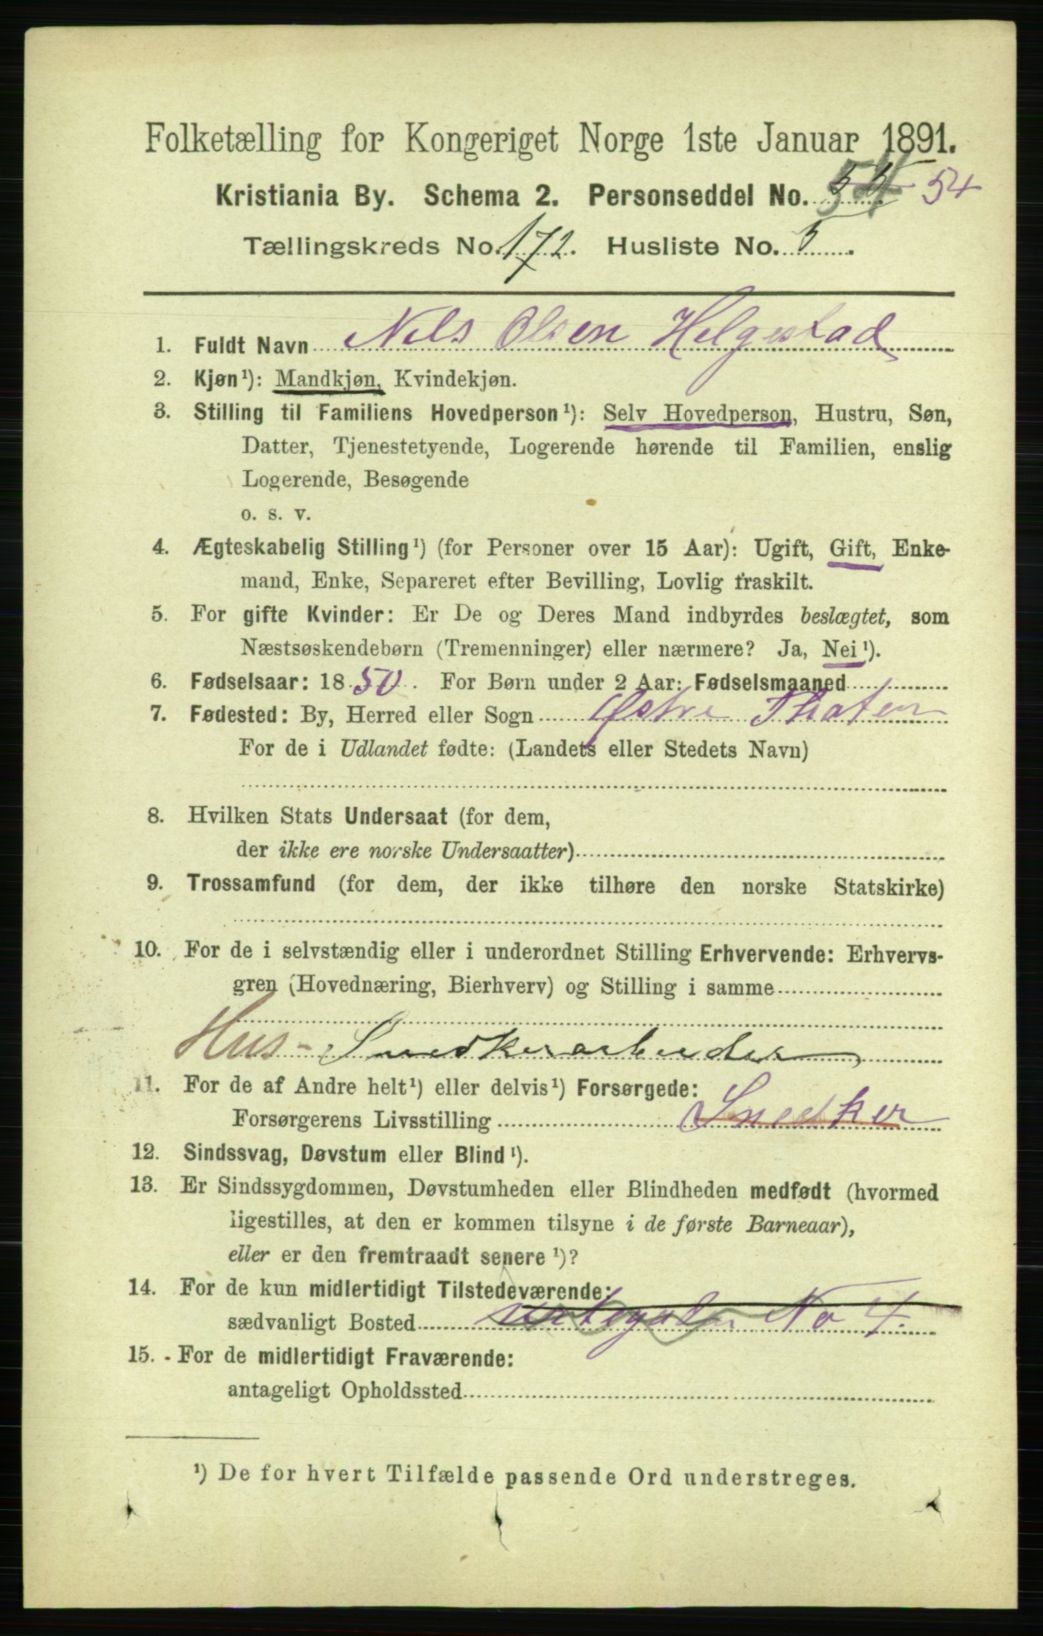 Folketælling for Kongeriget Norge 1ste Januar 1891.
Kristiania By. Schema 2. Personseddel No. 54
Tællingskreds No. 172. Husliste No. 5.
1. Fuldt Navn Nils Olsen Helgestad
2. Kjøn¹): Mandkjøn, Kvindekjøn.
3. Stilling til Familiens Hovedperson¹): Selv Hovedperson, Hustru, Søn,
Datter, Tjenestetyende, Logerende hørende til Familien, enslig
Logerende, Besøgende
o. s. v.
4. Ægteskabelig Stilling¹) (for Personer over 15 Aar): Ugift, Gift, Enke-
mand, Enke, Separeret efter Bevilling, Lovlig fraskilt.
5. For gifte Kvinder: Er De og Deres Mand indbyrdes beslægtet, som
Næstsøskendebørn (Tremenninger) eller nærmere? Ja, Nei¹).
6. Fødselsaar: 1850. For Børn under 2 Aar: Fødselsmaaned
7. Fødested: By, Herred eller Sogn Østre Thoten
For de i Udlandet fødte: (Landets eller Stedets Navn)
8. Hvilken Stats Undersaat (for dem,
der ikke ere norske Undersaatter)
9. Trossamfund (for dem, der ikke tilhøre den norske Statskirke)
10. For de i selvstændig eller i underordnet Stilling Erhvervende: Erhvervs-
gren (Hovednæring, Bierhverv) og Stilling i samme
Hus-Snedkerarbeider
11. For de af Andre helt¹) eller delvis¹) Forsørgede:
Forsørgerens Livsstilling Snedker
12. Sindssvag, Døvstum eller Blind¹).
13. Er Sindssygdommen, Døvstumheden eller Blindheden medfødt (hvormed
ligestilles, at den er kommen tilsyne i de første Barneaar),
eller er den fremtraadt senere¹)?
14. For de kun midlertidigt Tilstedeværende:
sædvanligt Bosted No 4.
15. For de midlertidigt Fraværende:
antageligt Opholdssted
¹) De for hvert Tilfælde passende Ord understreges.